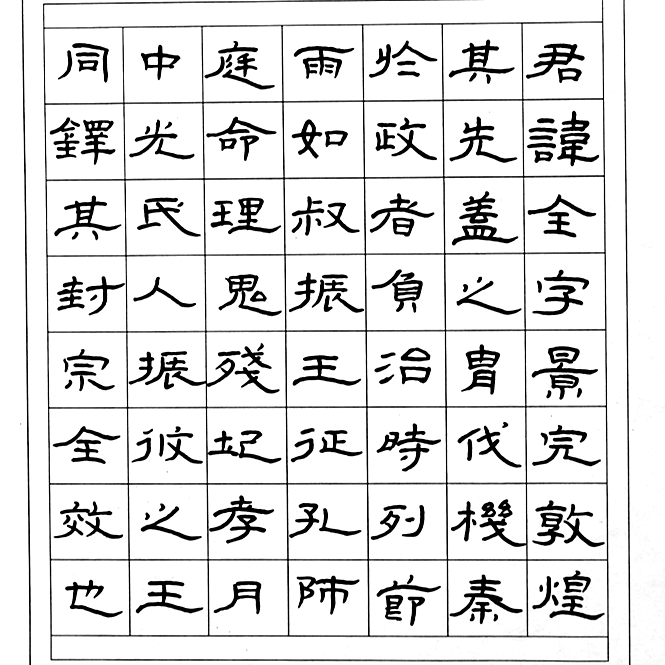 君諱全字景完敦煌
其先蓋之胄伐機秦
於政者負治時列節
雨如叔振王征孔師
庭命理鬼殘圮孝月
中光氏人振彼之王
同鐸其封宗全效也